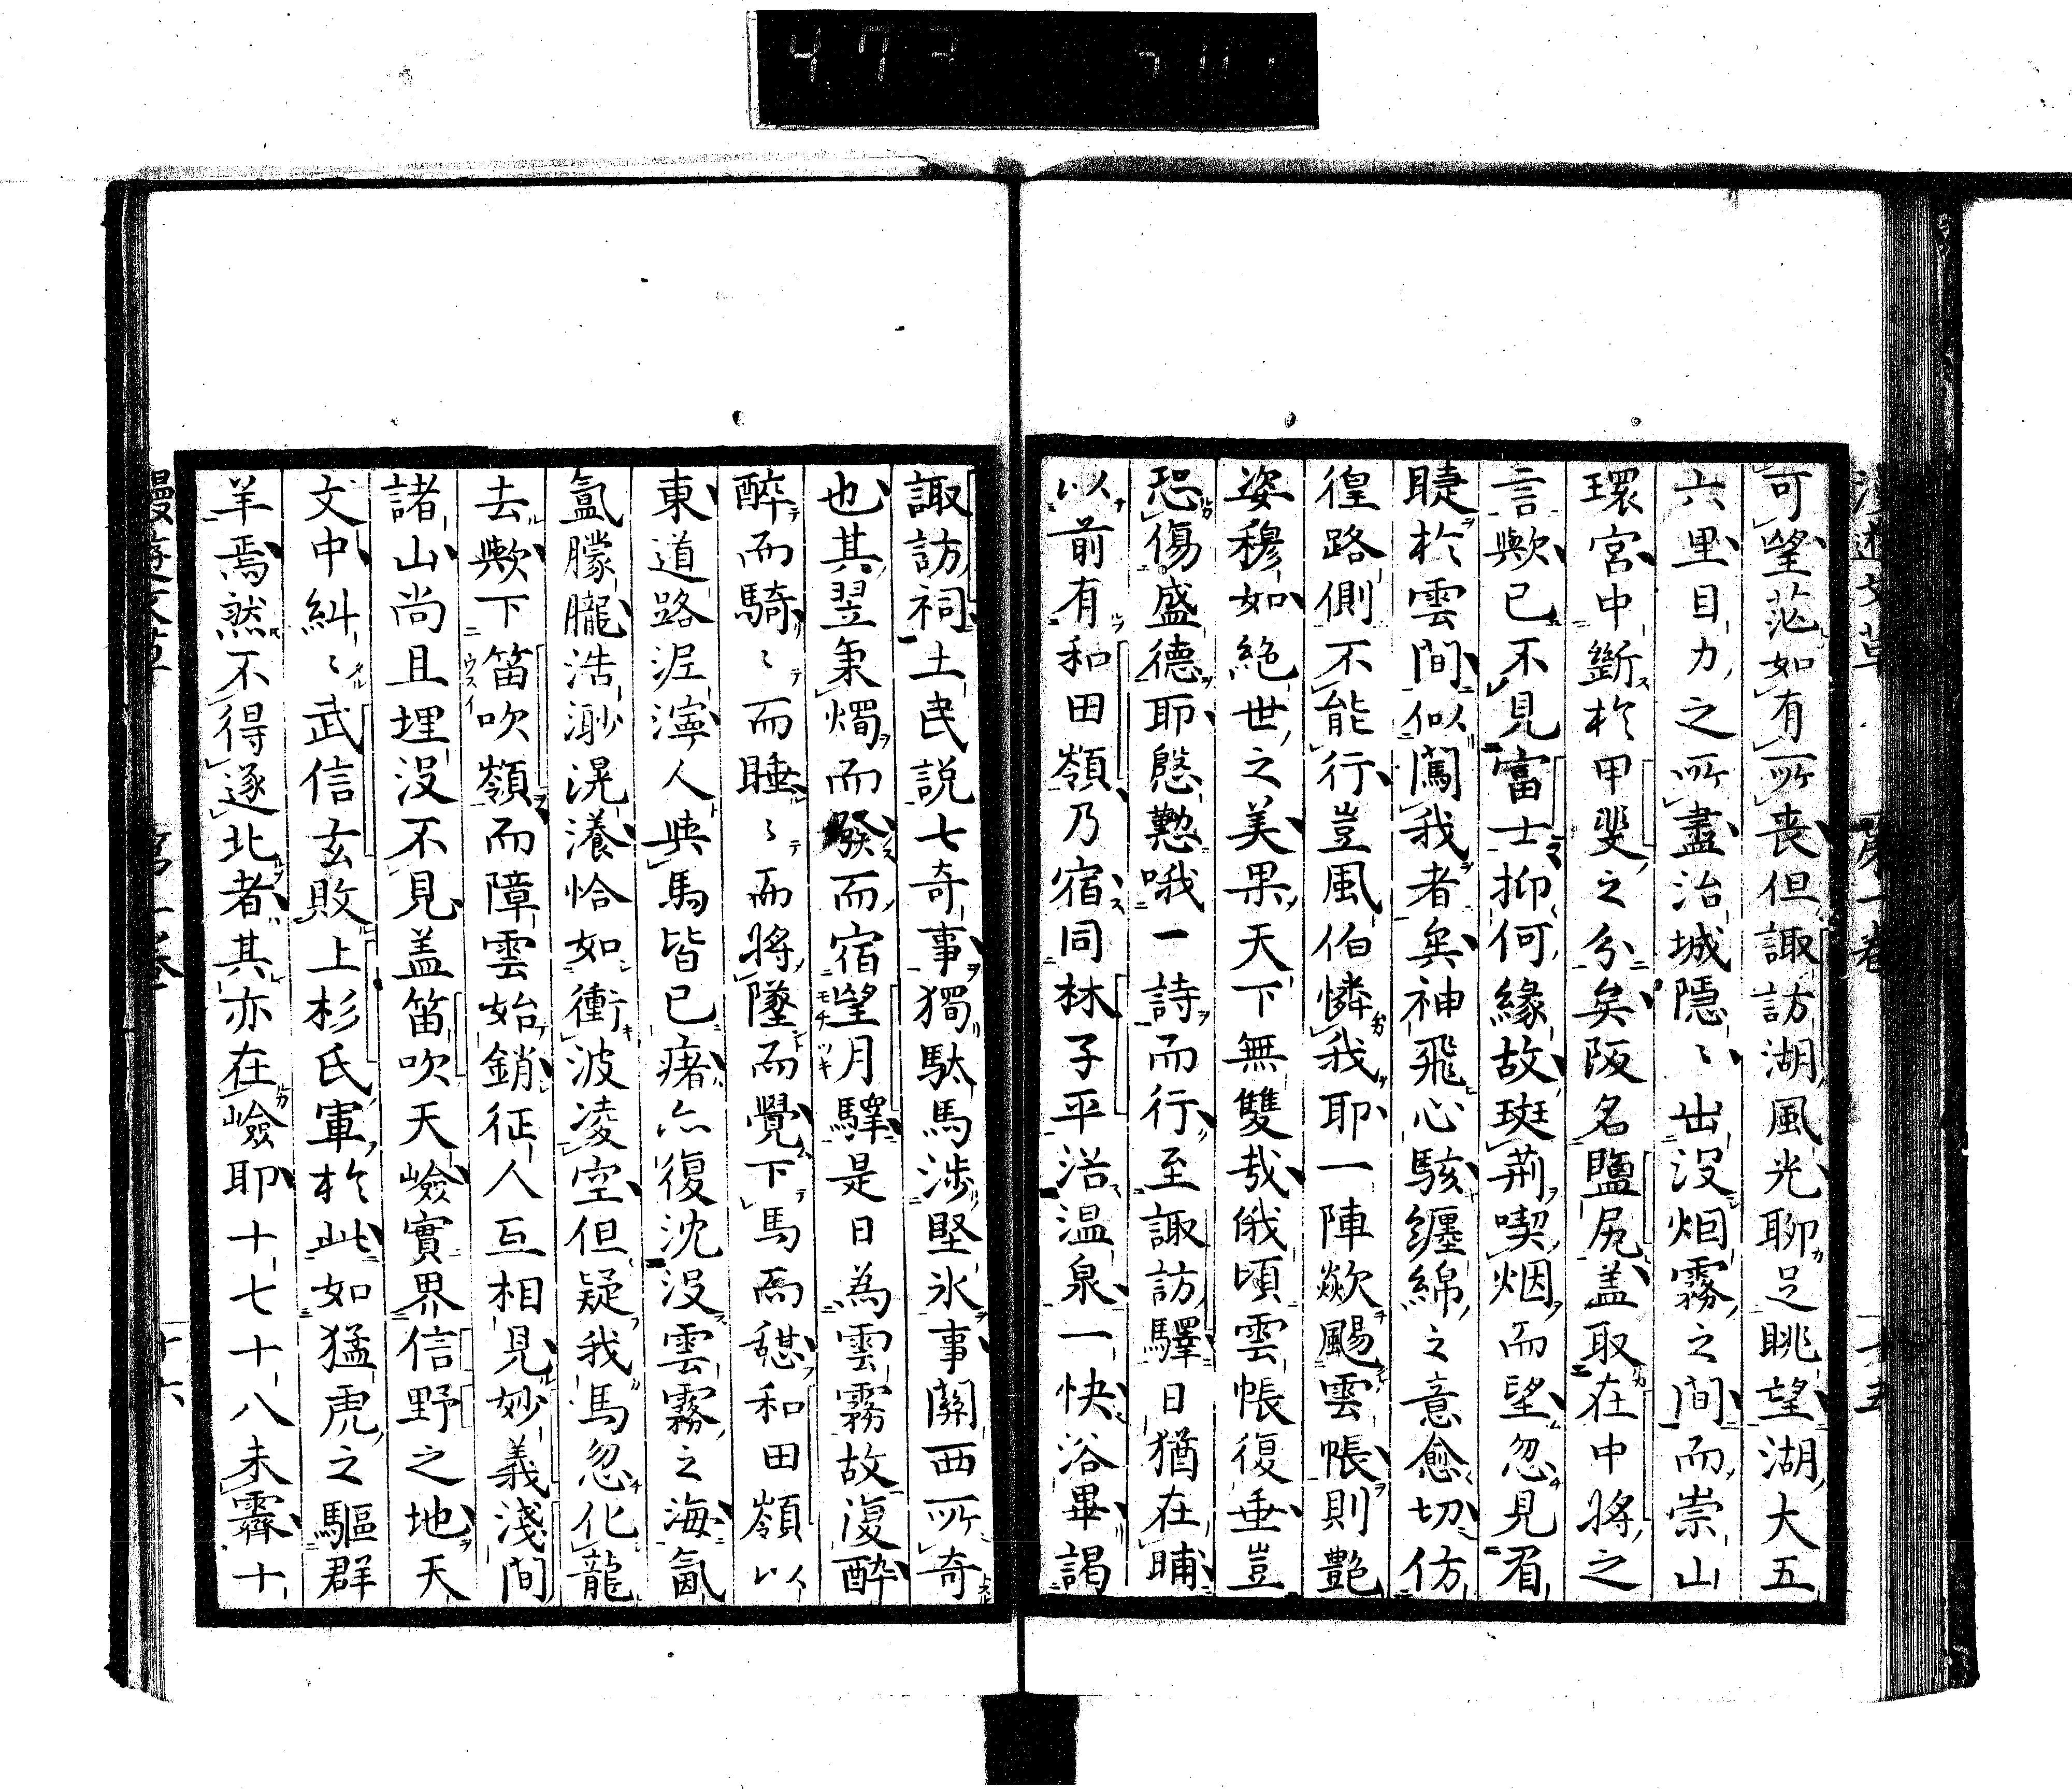 可望茫如有所喪但諏訪湖風光聊足眺望湖大五
六里目力之所盡治城隠〻出没烟霧之間而崇山
環宮中斷於甲斐之分矣阪名鹽尻盖取在中將之
言歟已不見富士抑何緣故班荊喫烟而望忽見眉
睫於雲間似闖我者矣神飛心駭纏綿之意愈切彷
徨路側不能行豈風伯憐我耶一陣歘颺雲帳則艷
姿穆如絶世之美果天下無雙哉俄頃雲帳復垂豈
恐傷盛德耶慇懃哦一詩而行至諏訪驛日猶在晡
以前有和田嶺乃宿同林子平浴温泉一快浴畢謁
諏訪祠土民説七奇事獨駄馬渉堅氷事關西所奇
也其翌秉燭而發而宿望月驛是日為雲霧故復酔
醉而騎〻而睡〻而將墜而覺下馬而憇和田嶺以
東道路泥濘人與馬皆已瘏亦復沈没雲霧之海氤
氳朦朧浩渺滉瀁恰如衝波凌空但疑我馬忽化龍
去歟下笛吹嶺而障雲始銷征人互相見妙義淺間
諸山尚且埋没不見盖笛吹天嶮實界信野之地天
文中糾〻武信玄敗上杉氏軍於此如猛虎之驅群
羊焉然不得遂北者其亦在嶮耶十七十八未霽十
漫遊文草 第一卷 十五
漫遊文草 第一卷 十六